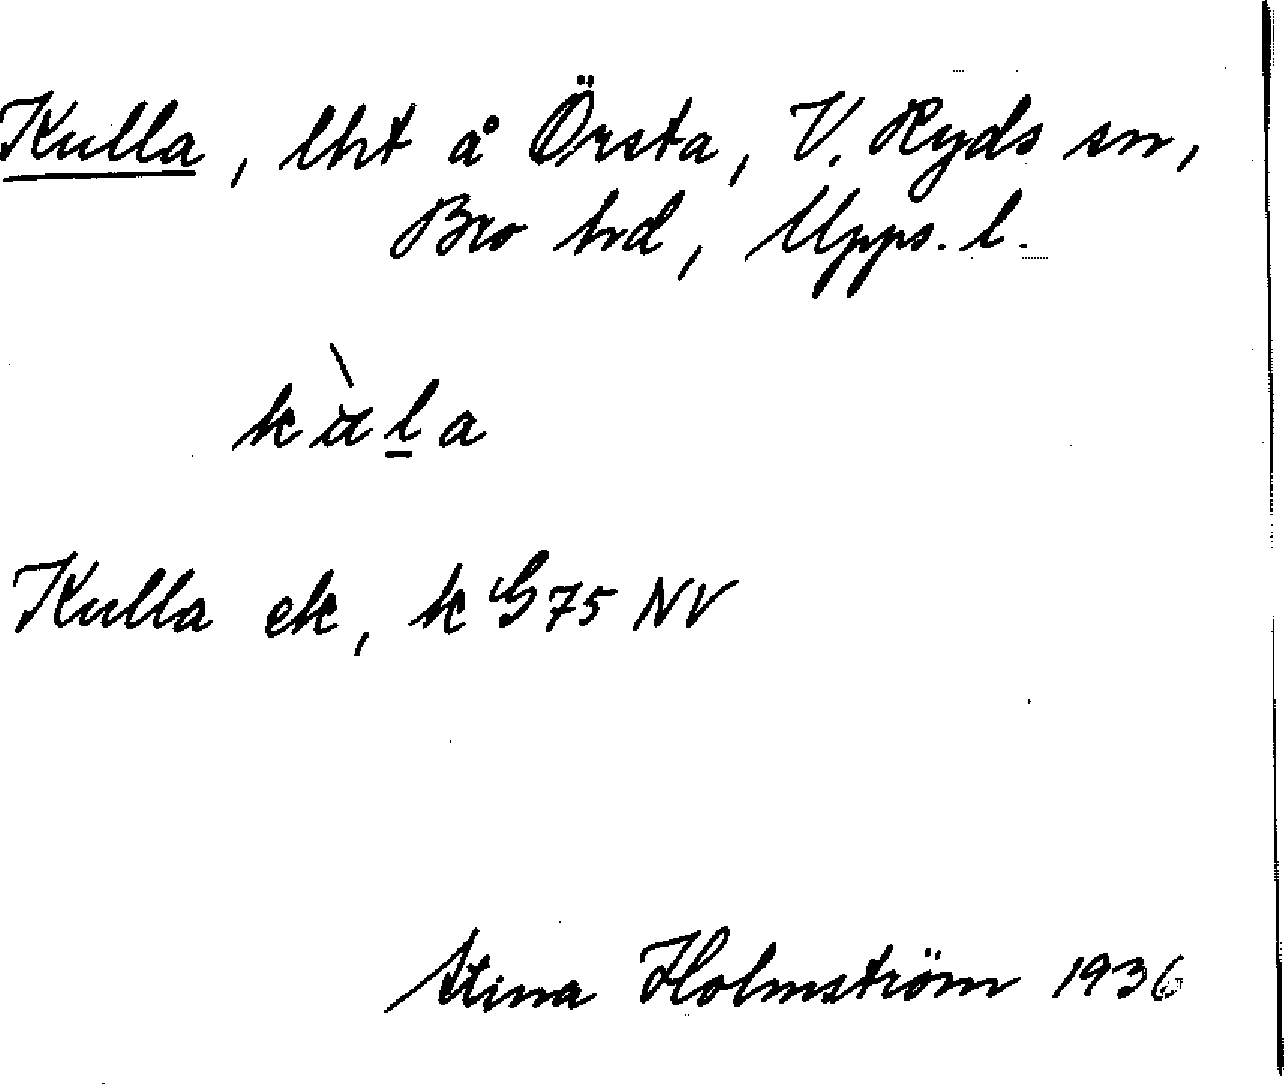 Kulla, lht å Örsta, V. Ryds sn,
Bro hd, Upps. l.
kàla
Kulla ek, k G75 NV
Stina Holmström 1936